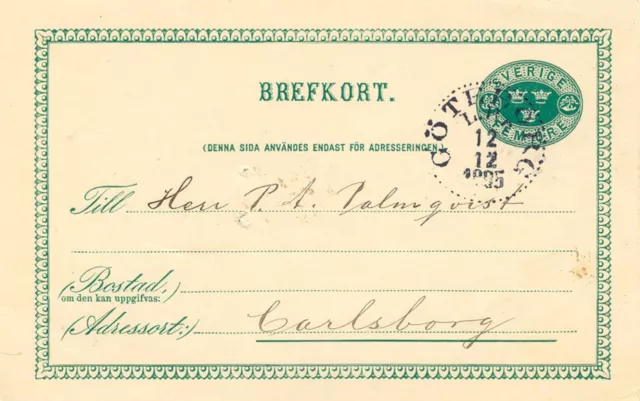 SVERIGE
FEM ÖRE
BREFKORT.
GÖTEBORG
12
12
1895
(DENNA SIDA ANVÄNDES ENDAST FÖR ADRESSERINGEN)
Till Herr P. A. Palmqvist
(Bostad,)
om den kan uppgifvas:
(Adressort:) Carlsborg